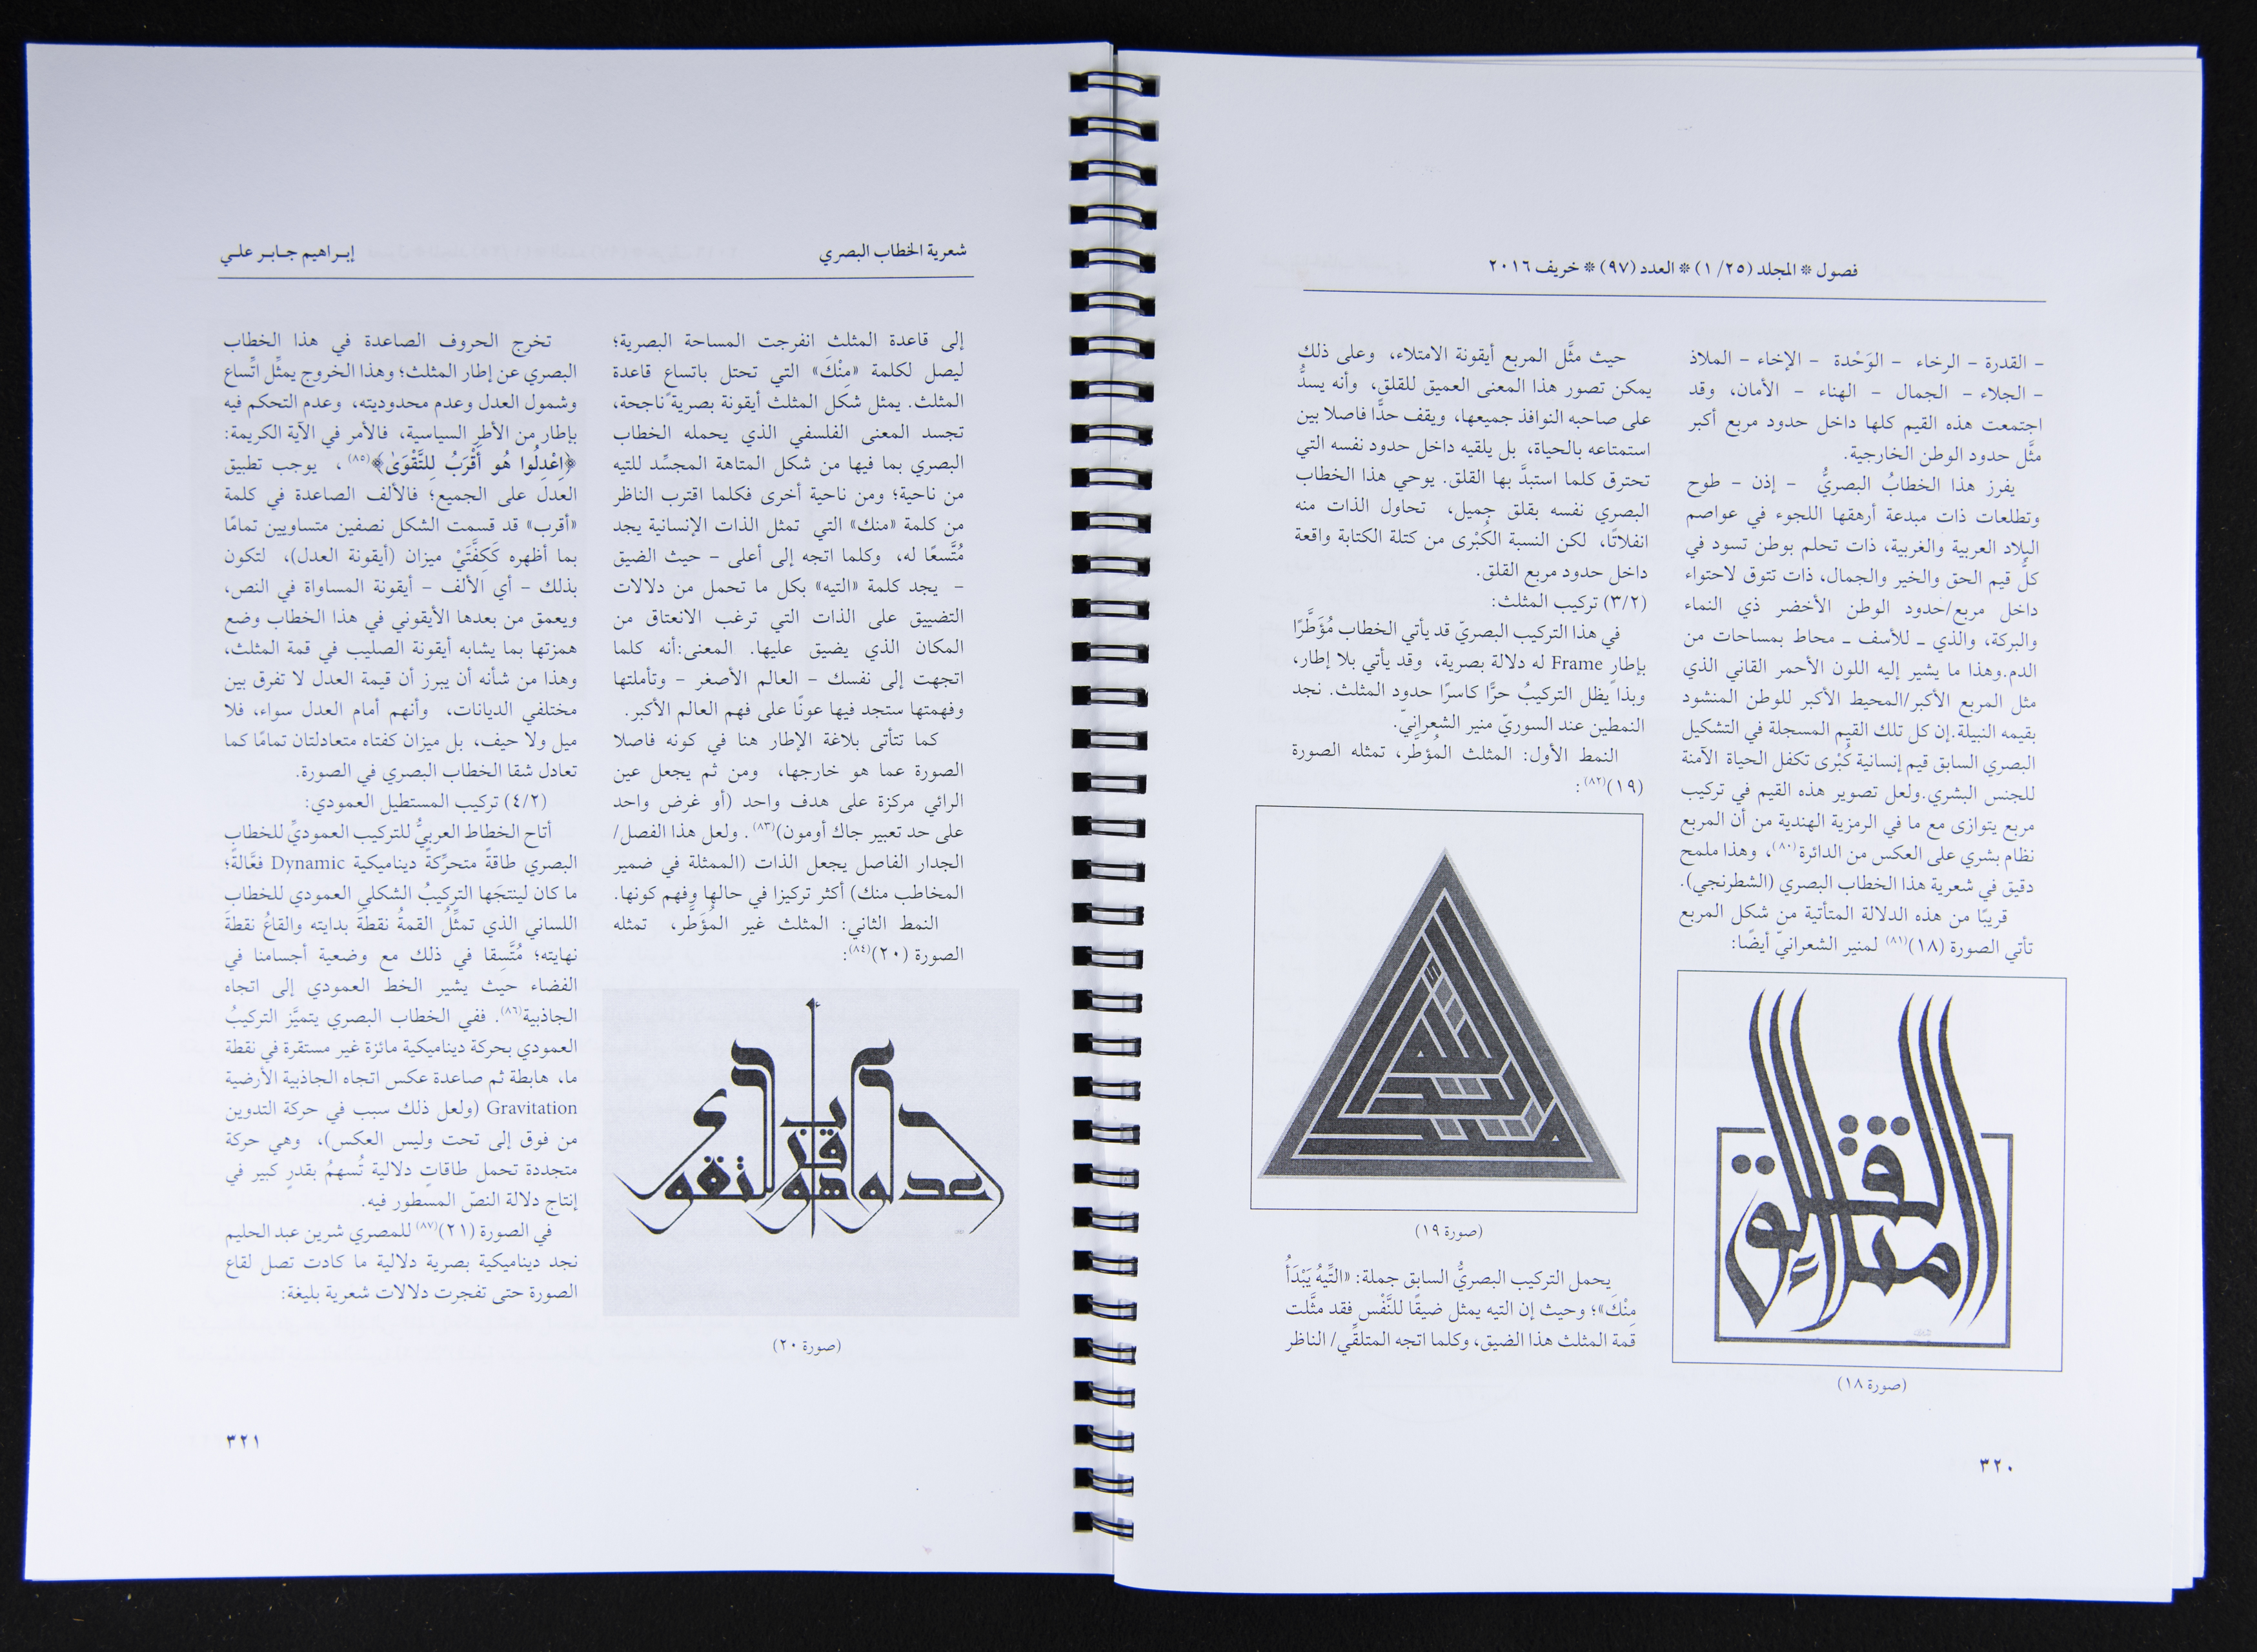 فصول * المجلد (٢٥/ ١) * العدد (٩٧) * خريف ٢٠١٦
– القدرة – الرخاء – الوَحْدة – الإخاء – الملاذ
– الجلاء – الجمال – الهناء – الأمان، وقد
اجتمعت هذه القيم كلها داخل حدود مربع أكبر
مثَّل حدود الوطن الخارجية.
يفرز هذا الخطابُ البصريُّ – إذن – طوح
وتطلعات ذات مبدعة أرهقها اللجوء في عواصم
البلاد العربية والغربية، ذات تحلم بوطن تسود في
كلُّ قيم الحق والخير والجمال، ذات تتوق لاحتواء
داخل مربع/حدود الوطن الأخضر ذي النماء
والبركة، والذي ــ للأسف ــ محاط بمساحات من
الدم.وهذا ما يشير إليه اللون الأحمر القاني الذي
مثل المربع الأكبر/المحيط الأكبر للوطن المنشود
بقيمه النبيلة.إن كل تلك القيم المسجلة في التشكيل
البصري السابق قيم إنسانية كُبْرى تكفل الحياة الآمنة
للجنس البشري.ولعل تصوير هذه القيم في تركيب
مربع يتوازى مع ما في الرمزية الهندية من أن المربع
نظام بشري على العكس من الدائرة(٨٠)، وهذا ملمح
دقيق في شعرية هذا الخطاب البصري (الشطرنجي).
قريبًا من هذه الدلالة المتأتية من شكل المربع
تأتي الصورة (١٨)(٨١) لمنير الشعرانيّ أيضًا:
(صورة ١٨)
حيث مثَّل المربع أيقونة الامتلاء، وعلى ذلك
يمكن تصور هذا المعنى العميق للقلق، وأنه يسدُّ
على صاحبه النوافذ جميعها، ويقف حدًّا فاصلا بين
استمتاعه بالحياة، بل يلقيه داخل حدود نفسه التي
تحترق كلما استبدَّ بها القلق. يوحي هذا الخطاب
البصري نفسه بقلق جميل، تحاول الذات منه
انفلاتًا، لكن النسبة الكُبْرى من كتلة الكتابة واقعة
داخل حدود مربع القلق.
(٣/٢) تركيب المثلث:
في هذا التركيب البصريّ قد يأتي الخطاب مُؤَطَّرًا
بإطار Frame له دلالة بصرية، وقد يأتي بلا إطار،
وبذا يظل التركيبُ حرًّا كاسرًا حدود المثلث. نجد
النمطين عند السوريّ منير الشعرانيّ.
النمط الأول: المثلث المُؤطَّر، تمثله الصورة
(١٩)(٨٢):
(صورة ١٩)
يحمل التركيب البصريُّ السابق جملة: «التِّيهُ يَبْدَأُ
مِنْكَ»؛ وحيث إن التيه يمثل ضيقًا للنَّفْس فقد مثَّلت
قمة المثلث هذا الضيق، وكلما اتجه المتلقِّي/ الناظر
٣٢٠
شعرية الخطاب البصري
إبـراهيم جـابـر علـي
إلى قاعدة المثلث انفرجت المساحة البصرية؛
ليصل لكلمة «مِنْكَ» التي تحتل باتساع قاعدة
المثلث. يمثل شكل المثلث أيقونة بصرية ناجحة،
تجسد المعنى الفلسفي الذي يحمله الخطاب
البصري بما فيها من شكل المتاهة المجسِّد للتيه
من ناحية؛ ومن ناحية أخرى فكلما اقترب الناظر
من كلمة «منك» التي تمثل الذات الإنسانية يجد
مُتَّسعًا له، وكلما اتجه إلى أعلى – حيث الضيق
– يجد كلمة «التيه» بكل ما تحمل من دلالات
التضييق على الذات التي ترغب الانعتاق من
المكان الذي يضيق عليها. المعنى:أنه كلما
اتجهت إلى نفسك – العالم الأصغر – وتأملتها
وفهمتها ستجد فيها عونًا على فهم العالم الأكبر.
كما تتأتى بلاغة الإطار هنا في كونه فاصلا
الصورة عما هو خارجها، ومن ثم يجعل عين
الرائي مركزة على هدف واحد (أو غرض واحد
على حد تعبير جاك أومون)(٨٣). ولعل هذا الفصل/
الجدار الفاصل يجعل الذات (الممثلة في ضمير
المخاطب منك) أكثر تركيزا في حالها وفهم كونها.
النمط الثاني: المثلث غير المُؤَطَّر، تمثله
الصورة (٢٠)(٨٤):
(صورة ٢٠)
تخرج الحروف الصاعدة في هذا الخطاب
البصري عن إطار المثلث؛ وهذا الخروج يمثِّل اتِّساع
وشمول العدل وعدم محدوديته، وعدم التحكم فيه
بإطار من الأطر السياسية، فالأمر في الآية الكريمة:
﴿اِعْدِلُوا هُو أَقْرَبُ لِلتَّقْوَىٰ﴾(٨٥)، يوجب تطبيق
العدل على الجميع؛ فالألف الصاعدة في كلمة
«أقرب» قد قسمت الشكل نصفين متساويين تمامًا
بما أظهره كَكِفَّتَيْ ميزان (أيقونة العدل)، لتكون
بذلك – أي الألف – أيقونة المساواة في النص،
ويعمق من بعدها الأيقوني في هذا الخطاب وضع
همزتها بما يشابه أيقونة الصليب في قمة المثلث،
وهذا من شأنه أن يبرز أن قيمة العدل لا تفرق بين
مختلفي الديانات، وأنهم أمام العدل سواء، فلا
ميل ولا حيف، بل ميزان كفتاه متعادلتان تمامًا كما
تعادل شقا الخطاب البصري في الصورة.
(٤/٢) تركيب المستطيل العمودي:
أتاح الخطاط العربيُّ للتركيب العموديِّ للخطاب
البصري طاقةً متحرِّكةً ديناميكية Dynamic فعَّالةً؛
ما كان لينتجَها التركيبُ الشكلي العمودي للخطاب
اللساني الذي تمثِّلُ القمةُ نقطةَ بدايته والقاعُ نقطةَ
نهايته؛ مُتَّسِقا في ذلك مع وضعية أجسامنا في
الفضاء حيث يشير الخط العمودي إلى اتجاه
الجاذبية(٨٦). ففي الخطاب البصري يتميَّز التركيبُ
العمودي بحركة ديناميكية مائزة غير مستقرة في نقطة
ما، هابطة ثم صاعدة عكس اتجاه الجاذبية الأرضية
Gravitation (ولعل ذلك سبب في حركة التدوين
من فوق إلى تحت وليس العكس)، وهي حركة
متجددة تحمل طاقاتٍ دلالية تُسهمُ بقدرٍ كبير في
إنتاج دلالة النصّ المسطور فيه.
في الصورة (٢١)(٨٧) للمصري شرين عبد الحليم
نجد ديناميكية بصرية دلالية ما كادت تصل لقاع
الصورة حتى تفجرت دلالات شعرية بليغة:
٣٢١